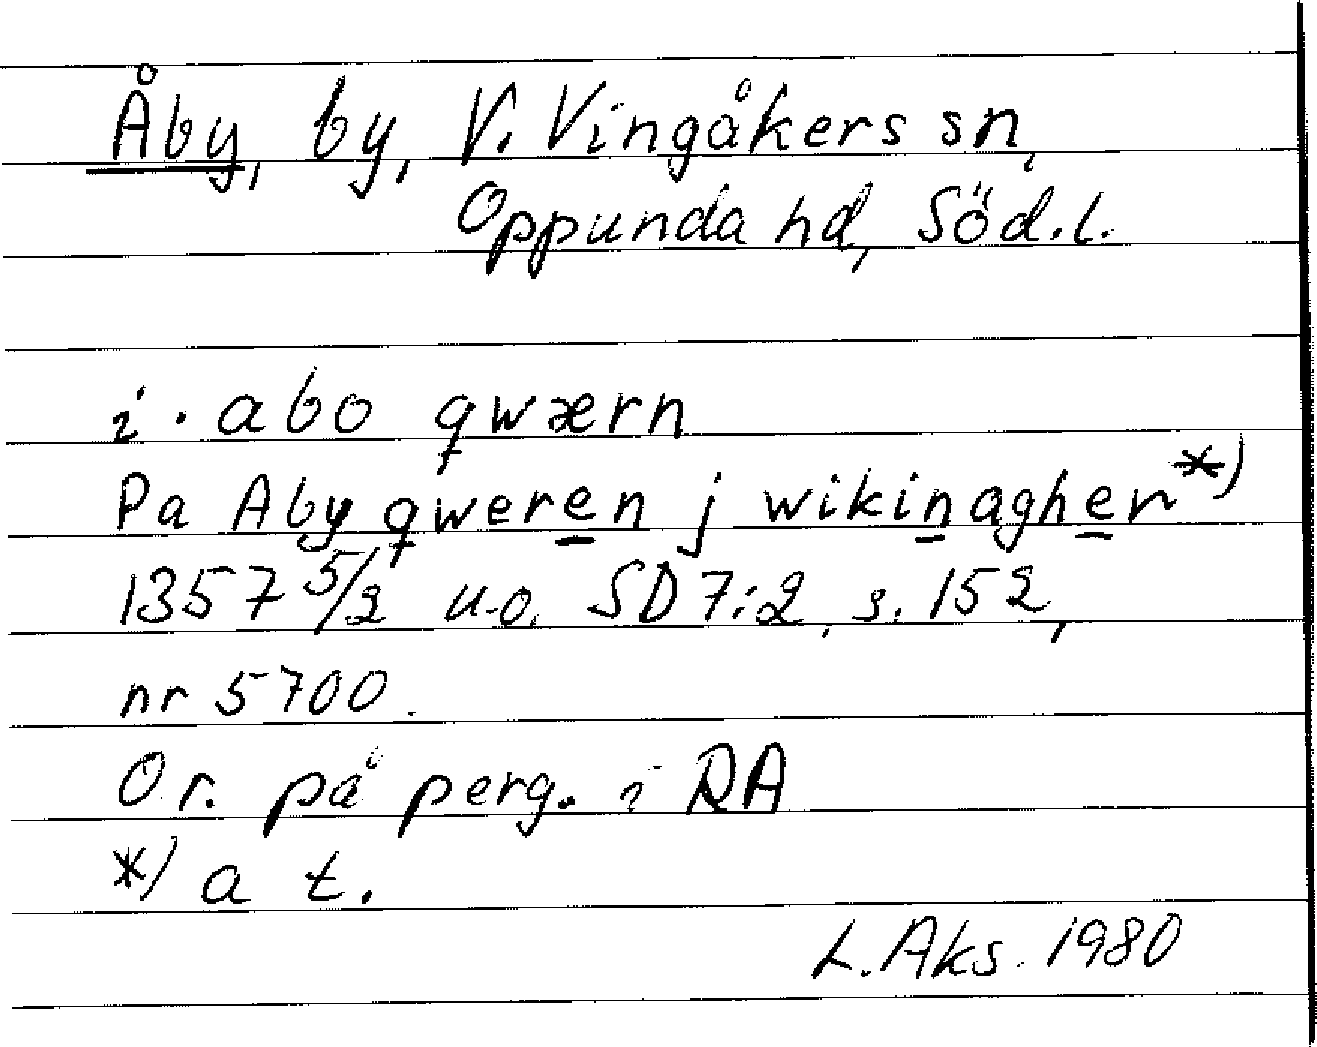 Åby, by, V. Vingåkers sn,
Oppunda hd, Söd.l.
i. abo qwærn
Pa Aby qweren j wikinagher*)
1357 5/2 u.o. SD 7:2, s. 152,
nr 5700.
Or. på perg. i RA
*) a t.
L. Aks. 1980